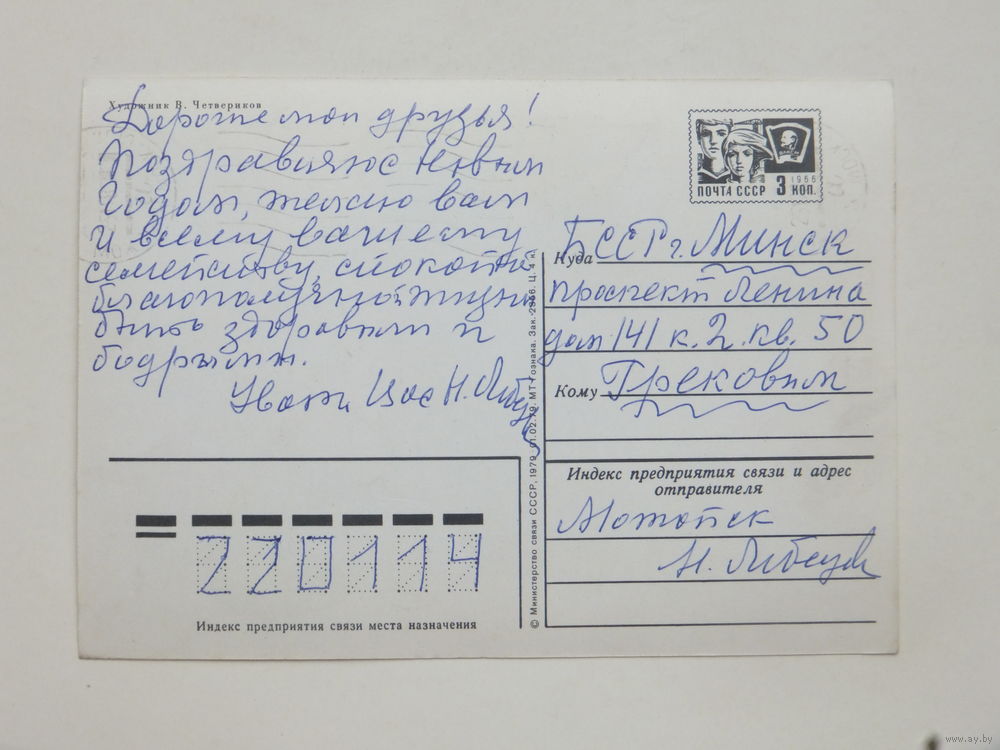 Художник В. Четвериков
Дорогие мои друзья!
Поздравляю с Новым
Годом, желаю вам
и всему вашему
семейству, спокойной
благополучной жизни
быть здоровыми и
бодрыми.
Уваж. Вас Н.
ПОЧТА СССР 3 КОП.
1966
Куда БССР г. Минск
проспект Ленина
дом 141 к. 2. кв. 50
Кому Грековым
Индекс предприятия связи и адрес
отправителя
Можайск
Н.
220114
Индекс предприятия связи места назначения
© Министерство связи СССР, 1979 01.02.79. МТ Гознака. Зак. Ц. 4 к.
www.ay.by